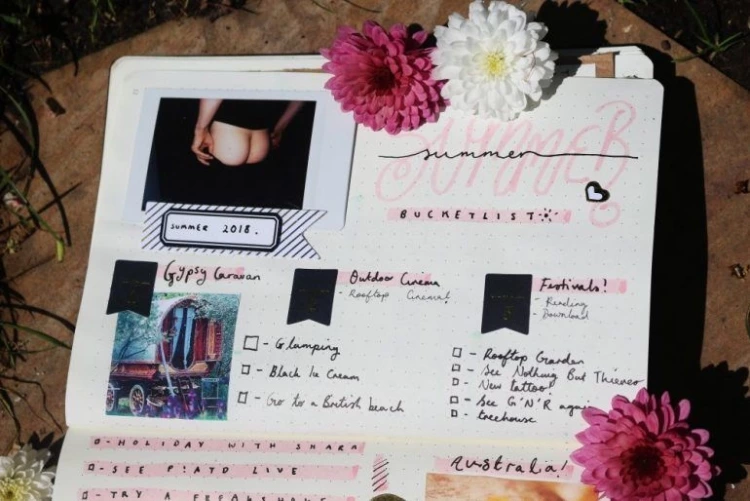 SUMMER
summer
BUCKETLIST
SUMMER 2018.
Gypsy Caravan
Outdoor Cinema
- Rooftop Cinema!
Festivals!
- Reading
- Download
- Glamping
- Black Ice Cream
- Go to a British beach
- Rooftop Garden
- See Nothing But Thieves
- New tattoo!
- See G'N'R again
- treehouse
- HOLIDAY WITH SHARA
- SEE P!ATD LIVE
- TRY A FREAKSHAKE
Australia!